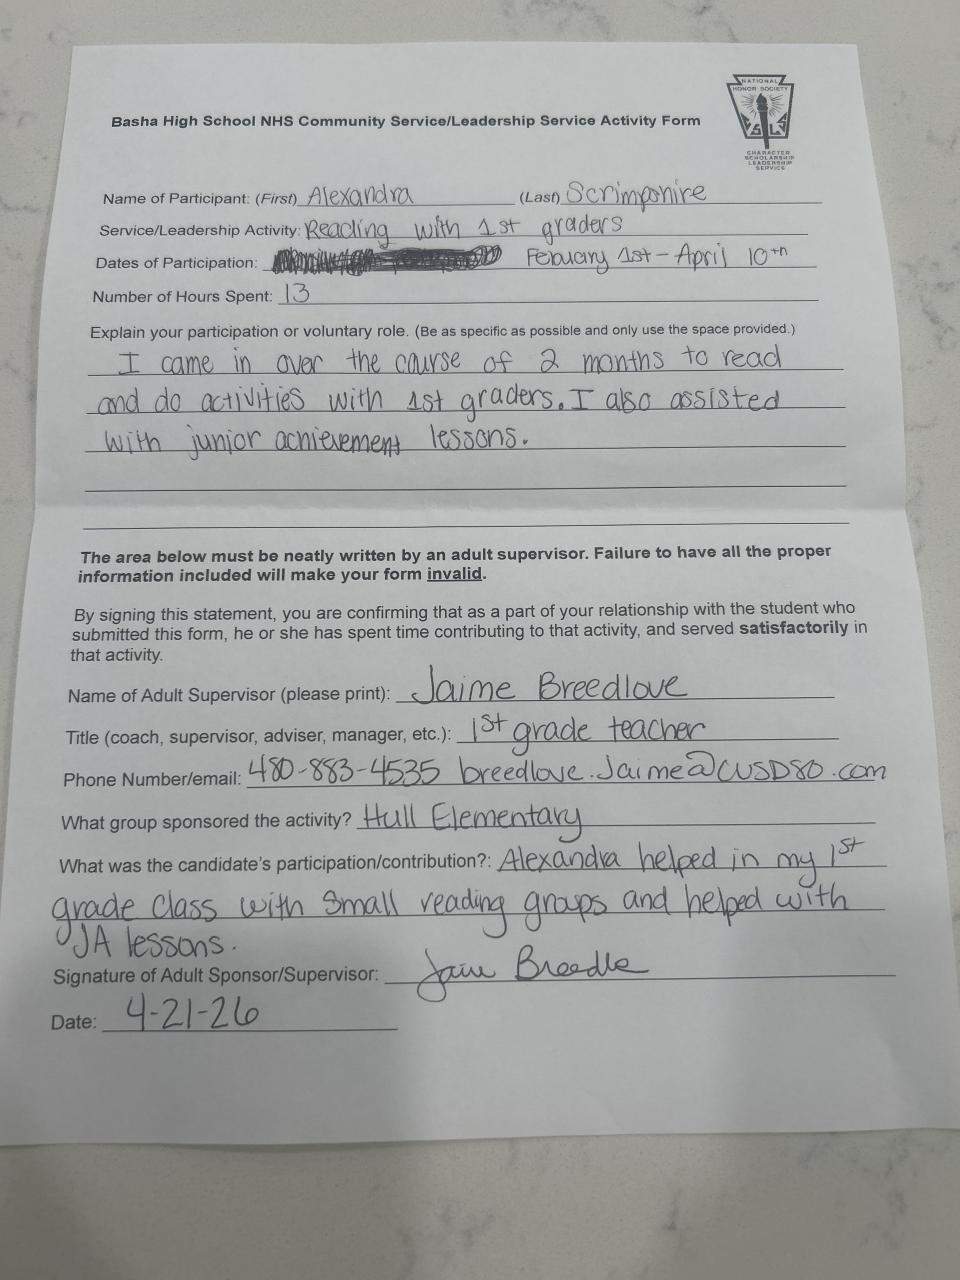 NATIONAL
HONOR SOCIETY
CHARACTER
SCHOLARSHIP
LEADERSHIP
SERVICE
Basha High School NHS Community Service/Leadership Service Activity Form
Name of Participant: (First) Alexandra (Last) Scrimpshire
Service/Leadership Activity: Reading with 1st graders
Dates of Participation: Febuary 1st - April 10th
Number of Hours Spent: 13
Explain your participation or voluntary role. (Be as specific as possible and only use the space provided.)
I came in over the course of 2 months to read
and do activities with 1st graders. I also assisted
with junior achievement lessons.
The area below must be neatly written by an adult supervisor. Failure to have all the proper
information included will make your form invalid.
By signing this statement, you are confirming that as a part of your relationship with the student who
submitted this form, he or she has spent time contributing to that activity, and served satisfactorily in
that activity.
Name of Adult Supervisor (please print): Jaime Breedlove
Title (coach, supervisor, adviser, manager, etc.): 1st grade teacher
Phone Number/email: 480-883-4535 breedlove.Jaime@CUSD80.com
What group sponsored the activity? Hull Elementary
What was the candidate's participation/contribution?: Alexandra helped in my 1st
grade class with small reading groups and helped with
JA lessons.
Signature of Adult Sponsor/Supervisor: Jaime Breedlove
Date: 4-21-26